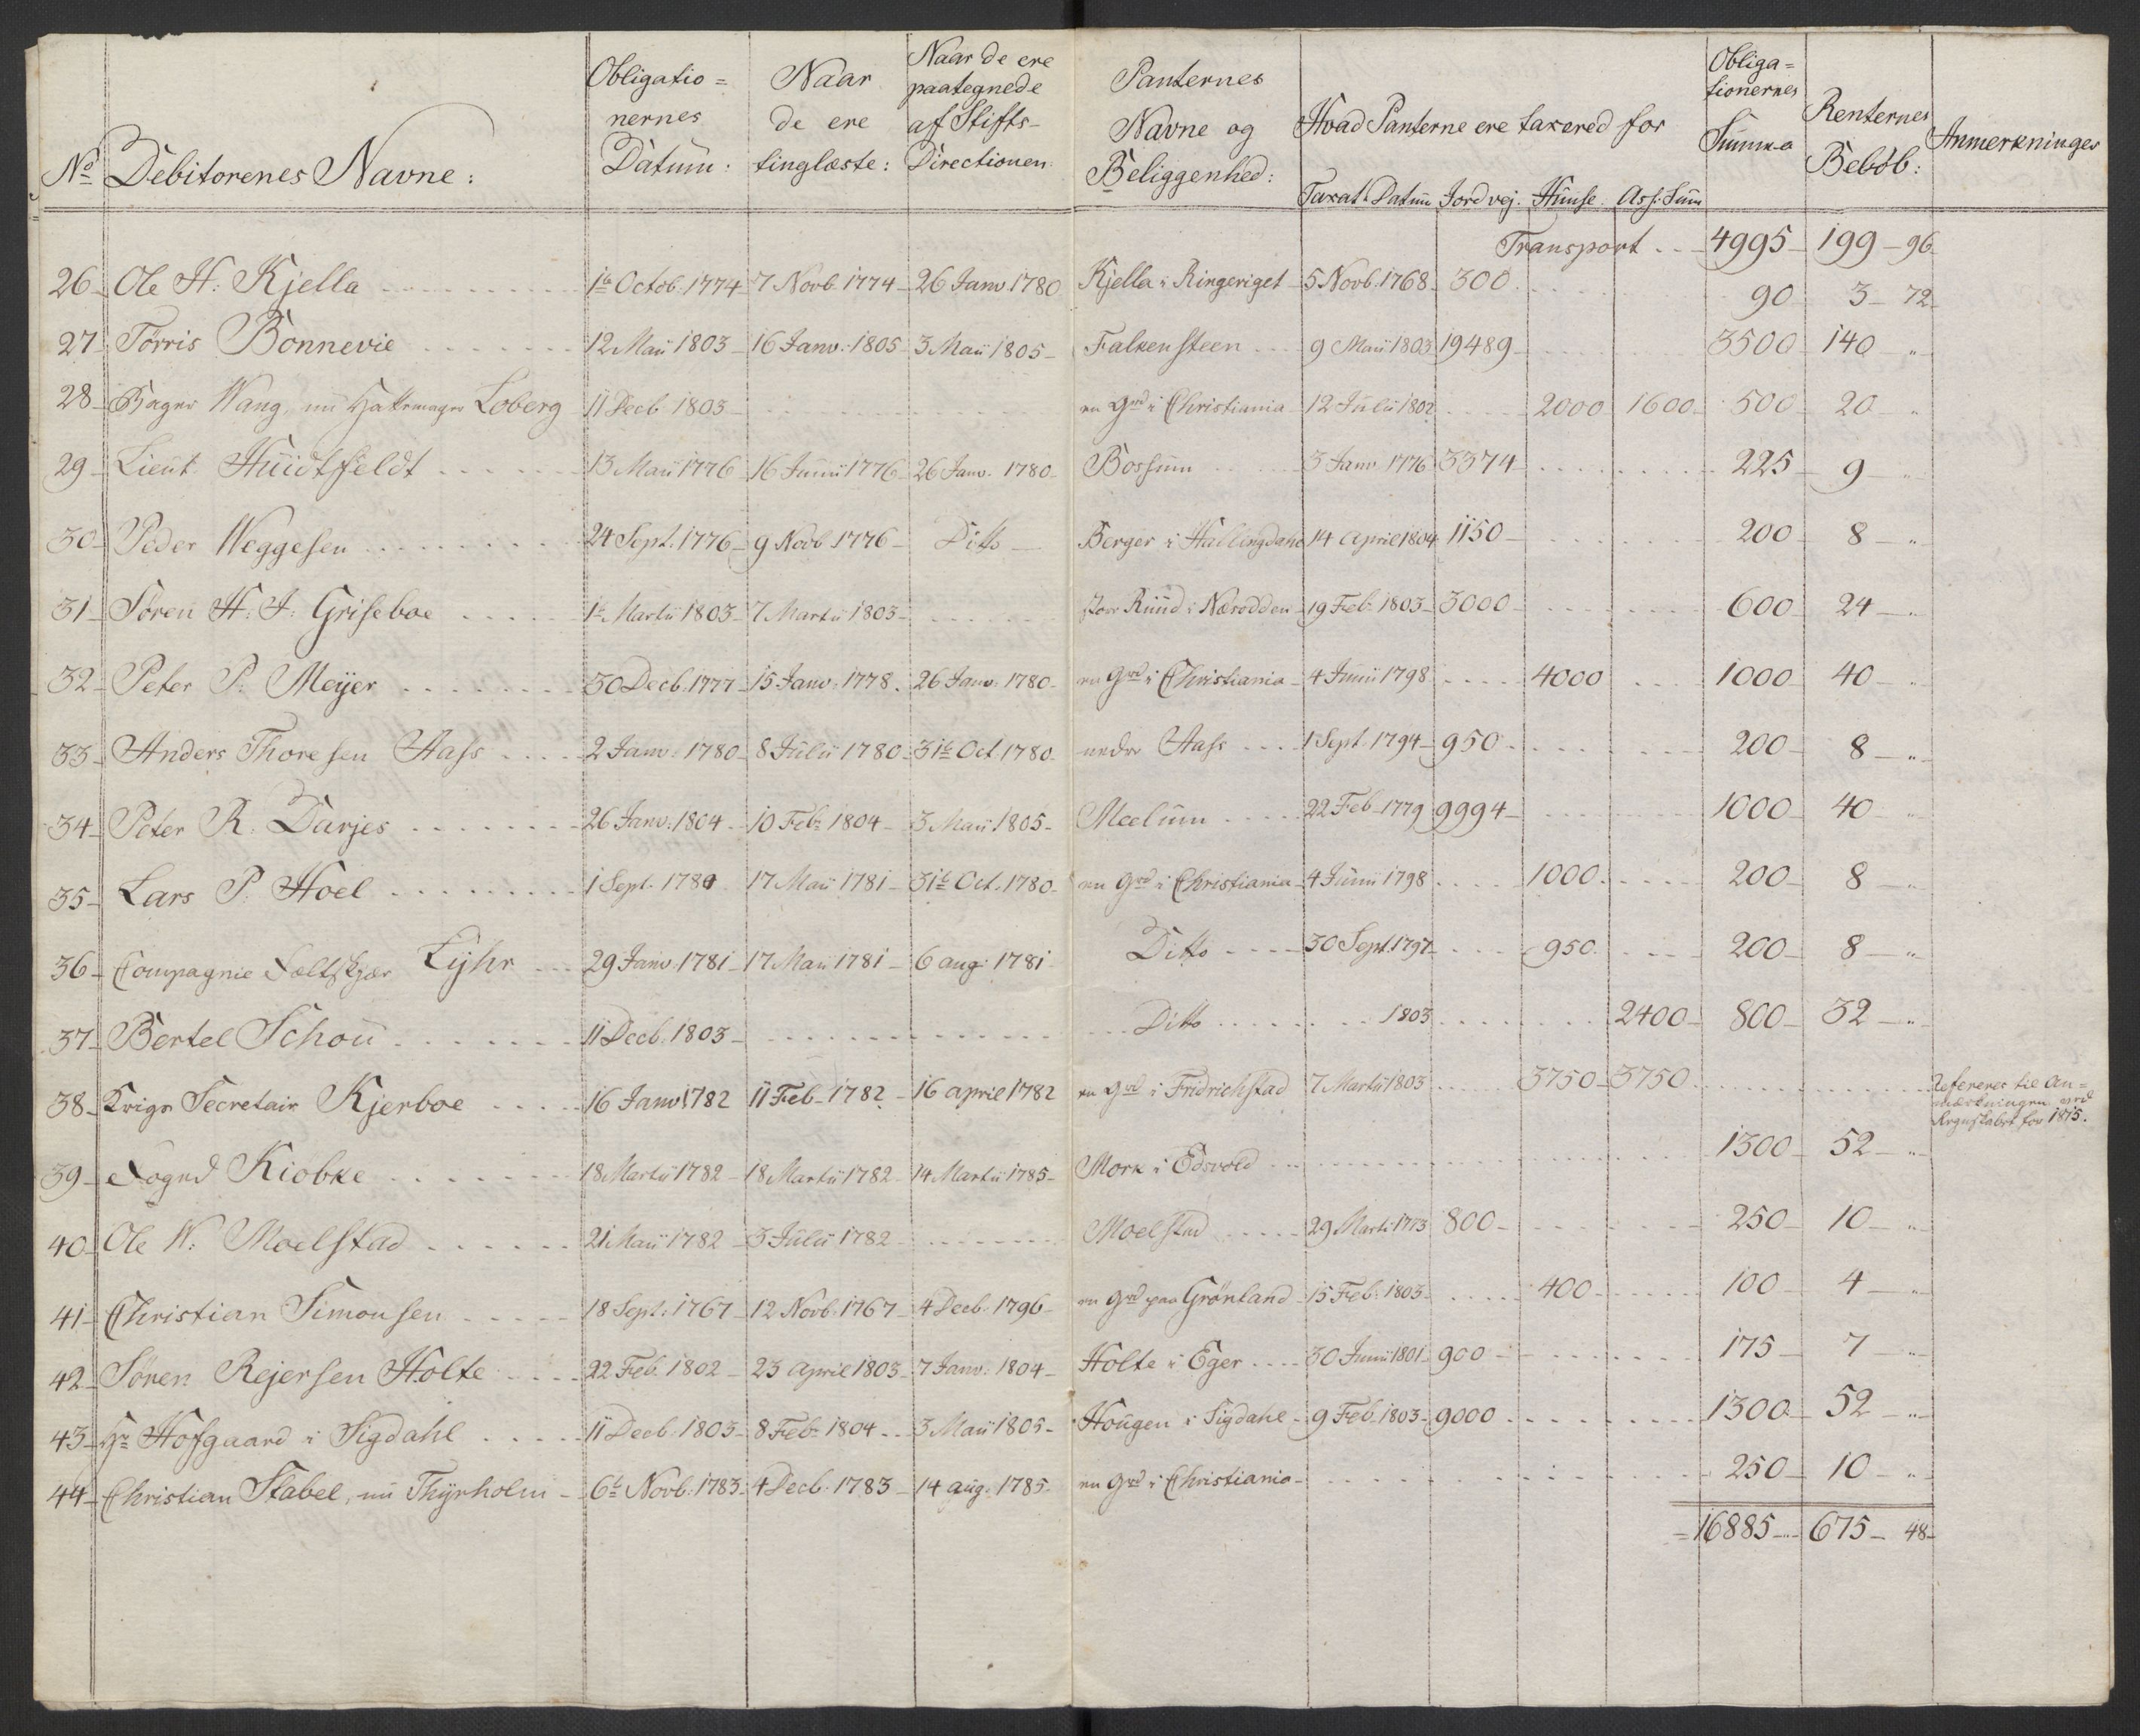 No Debitorenes Navne: Obligationernes Datum: Naar de ere tinglæste: Naar de ere paategnede af Stifts-Directionen: Panternes Navne og Beliggenhed: Hvad Panterne ere taxered for Obligationernes Summa Renternes Beløb: Anmerkninger
Taxat: Datum Jordvej. Huuse. Ass: Sum
Transport .. 4995 - 199 - 96
26 Ole H: Kjella 1te Octob. 1774 7 Novb. 1774 26 Janv. 1780 Kjella i Ringeriget 5 Novb. 1768 300 90 3 - 72
27 Tørris Bonnevie 12 Maii 1803 16 Janv: 1805 3 Maii 1805 Falkensteen 9 Maii 1803 19489 3500 140 - "
28 Bager Wang, nu Hattemager Loberg 11 Decb. 1803 en Grd i Christiania 12 Julii 1802 2000 1600 500 20 - "
29 Lieut. Huidtfeldt 13 Maii 1776 16 Junii 1776 26 Janv. 1780 Bossum 3 Janv. 1776 3374 225 9 - "
30 Peder Weggesen 24 Sept. 1776 9 Novb 1776 Ditto Berger i Hallingdahl 14 April 1804 1150 200 8 - "
31 Søren H: J: Griseboe 1te Martii 1803 7 Martii 1803 store Ruud i Næsodden 19 Feb. 1803 3000 600 24 - "
32 Peter P: Meÿer 30 Decb. 1777 15 Janv: 1778 26 Janv: 1780 en Grd i Christiania 4 Junii 1798 4000 1000 40 - "
33 Anders Thoresen Aass 2 Janv: 1780 8 Julii 1780 31te Oct. 1780 nedre Aass 1 Sept. 1794 950 200 8 - "
34 Peter R. Darjes 26 Janv: 1804 10 Feb: 1804 3 Maii 1805 Meelum 22 Feb 1779 9994 1000 40 - "
35 Lars P. Hoel 1 Sept. 1780 17 Maii 1781 31te Oct. 1780 en Grd i Christiania 4 Junii 1798 1000 200 8 - "
36 Compagnie Feltskjær Lÿhr 29 Janv. 1781 17 Maii 1781 6 Aug: 1781 Ditto 30 Sept. 1797 950 200 8 - "
37 Bertel Schou 11 Decb. 1803 Ditto 1803 2400 800 32 - "
38 Krigs Secretair Kjerboe 16 Janv 1782 11 Feb. 1782 16 April 1782 en Grd i Fridrichstad 7 Martii 1803 3750 3750 Refereres til Anmærkningen ved Regnskabet for 1815.
39 Foged Kiøbke 18 Martii 1782 18 Martii 1782 14 Martii 1785 Mork i Edsvold 1300 52 - "
40 Ole N: Moelstad 21 Maii 1782 3 Julii 1782 Moelstad 29 Marti 1773 800 250 10 - "
41 Christian Simonsen 18 Sept: 1767 12 Novb. 1767 4 Decb. 1796 en Grd paa Grønland 15 Feb. 1803 400 100 4 - "
42 Søren Rejersen Holte 22 Feb. 1802 23 April 1803 7 Janv: 1804 Holte i Eger 30 Junii 1801 900 175 7 - "
43 Hr Hofgaard i Sigdahl 11 Decb. 1803 8 Feb: 1804 3 Maii 1805 Hougen i Sigdahl 9 Feb. 1803 9000 1300 52 - "
44 Christian Stabel, nu Thÿrholm 6te Novb: 1783 4 Decb. 1783 14 Aug. 1785 en Grd i Christiania 250 10 - "
16885 - 675 - 48